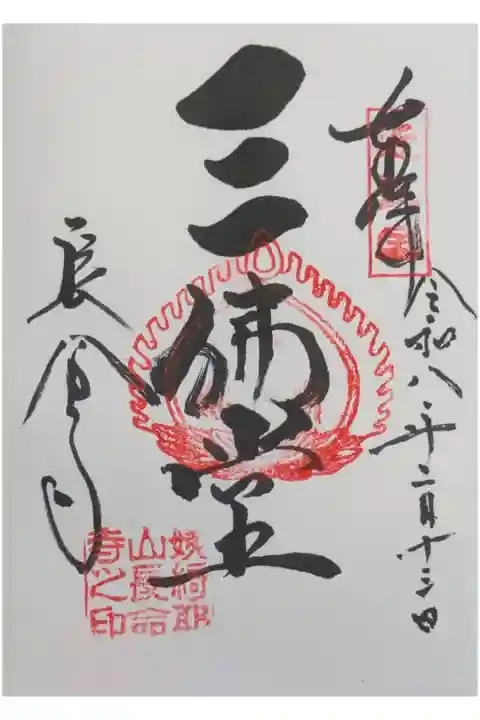 奉拝
令和八年二月十三日
三佛堂
長命寺
姨綺耶
山長命
寺之印